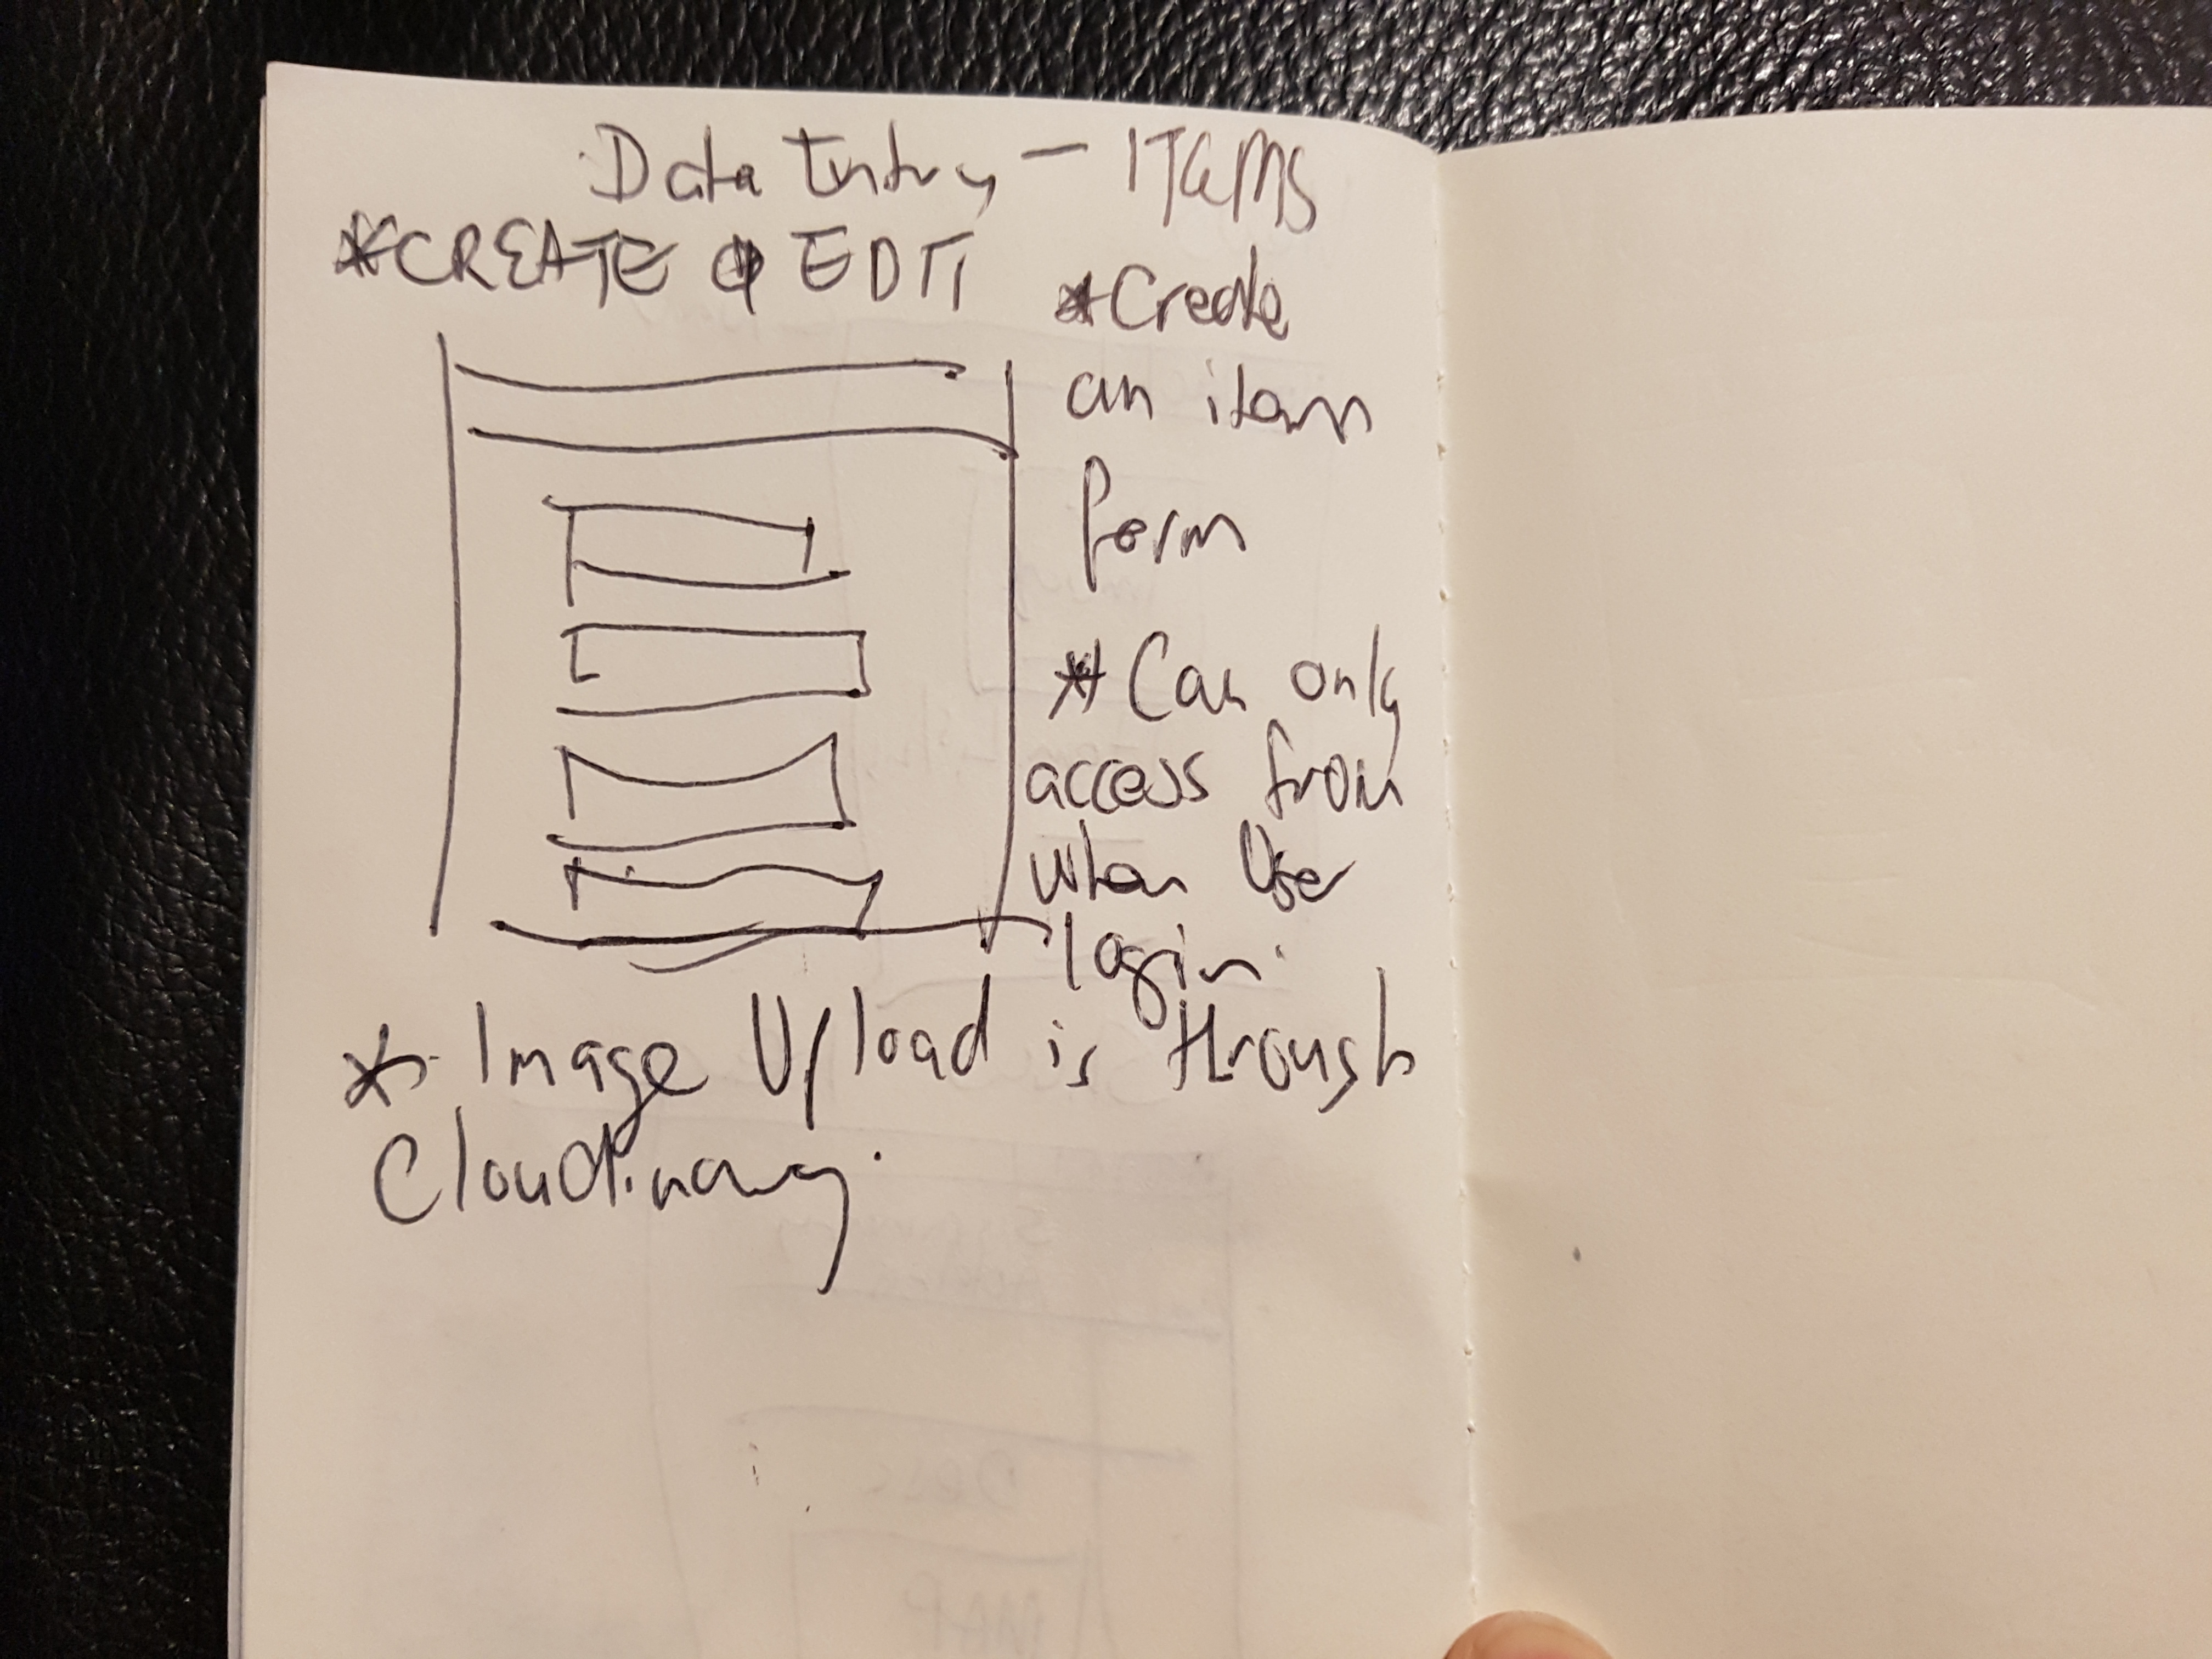 Data Entry - ITEMS
*CREATE & EDIT
*Create
an item
form
*Can only
access from
when User
login.
*Image Upload is through
Cloudinary.